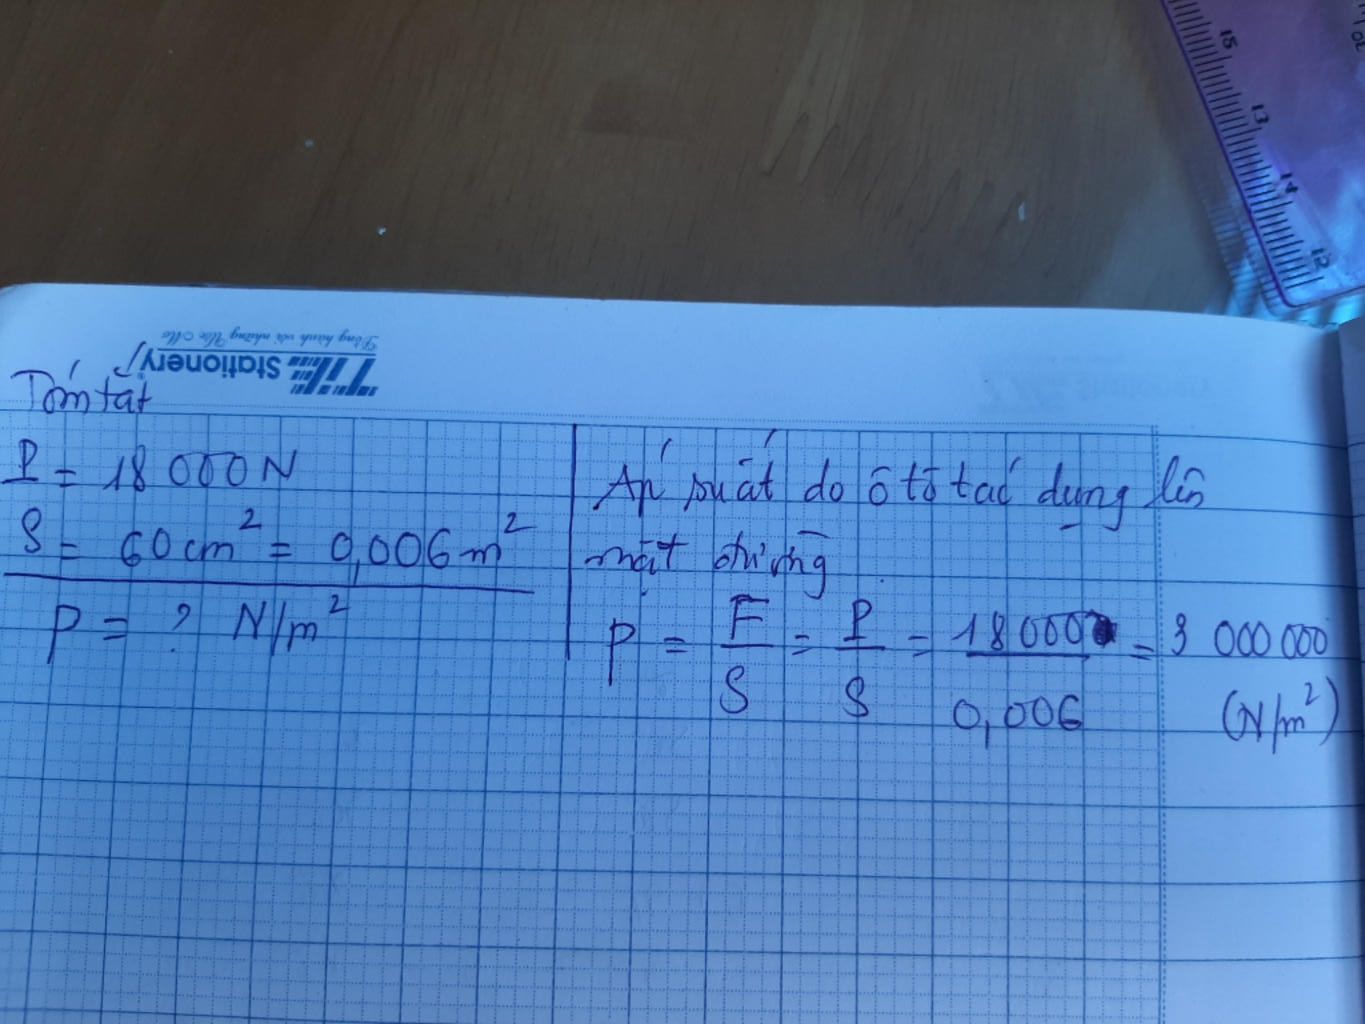 TL Stationery
Đồng hành với những Ước Mơ
Tóm tắt
P = 18 000 N
S = 60 cm² = 0,006 m²
p = ? N/m²
Áp suất do ô tô tác dụng lên
mặt đường
p = F/S = P/S = 18 000/0,006 = 3 000 000
(N/m²)
15
13
14
12